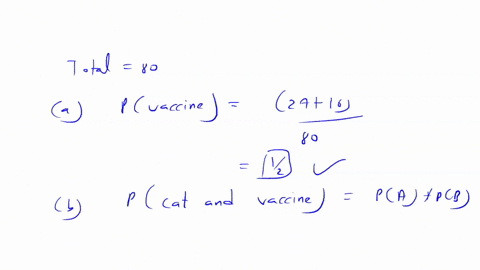 Total = 80
(a) P(vaccine) = (24+16)
80
= 1/2 ✓
(b) P(cat and vaccine) = P(A) * P(B)